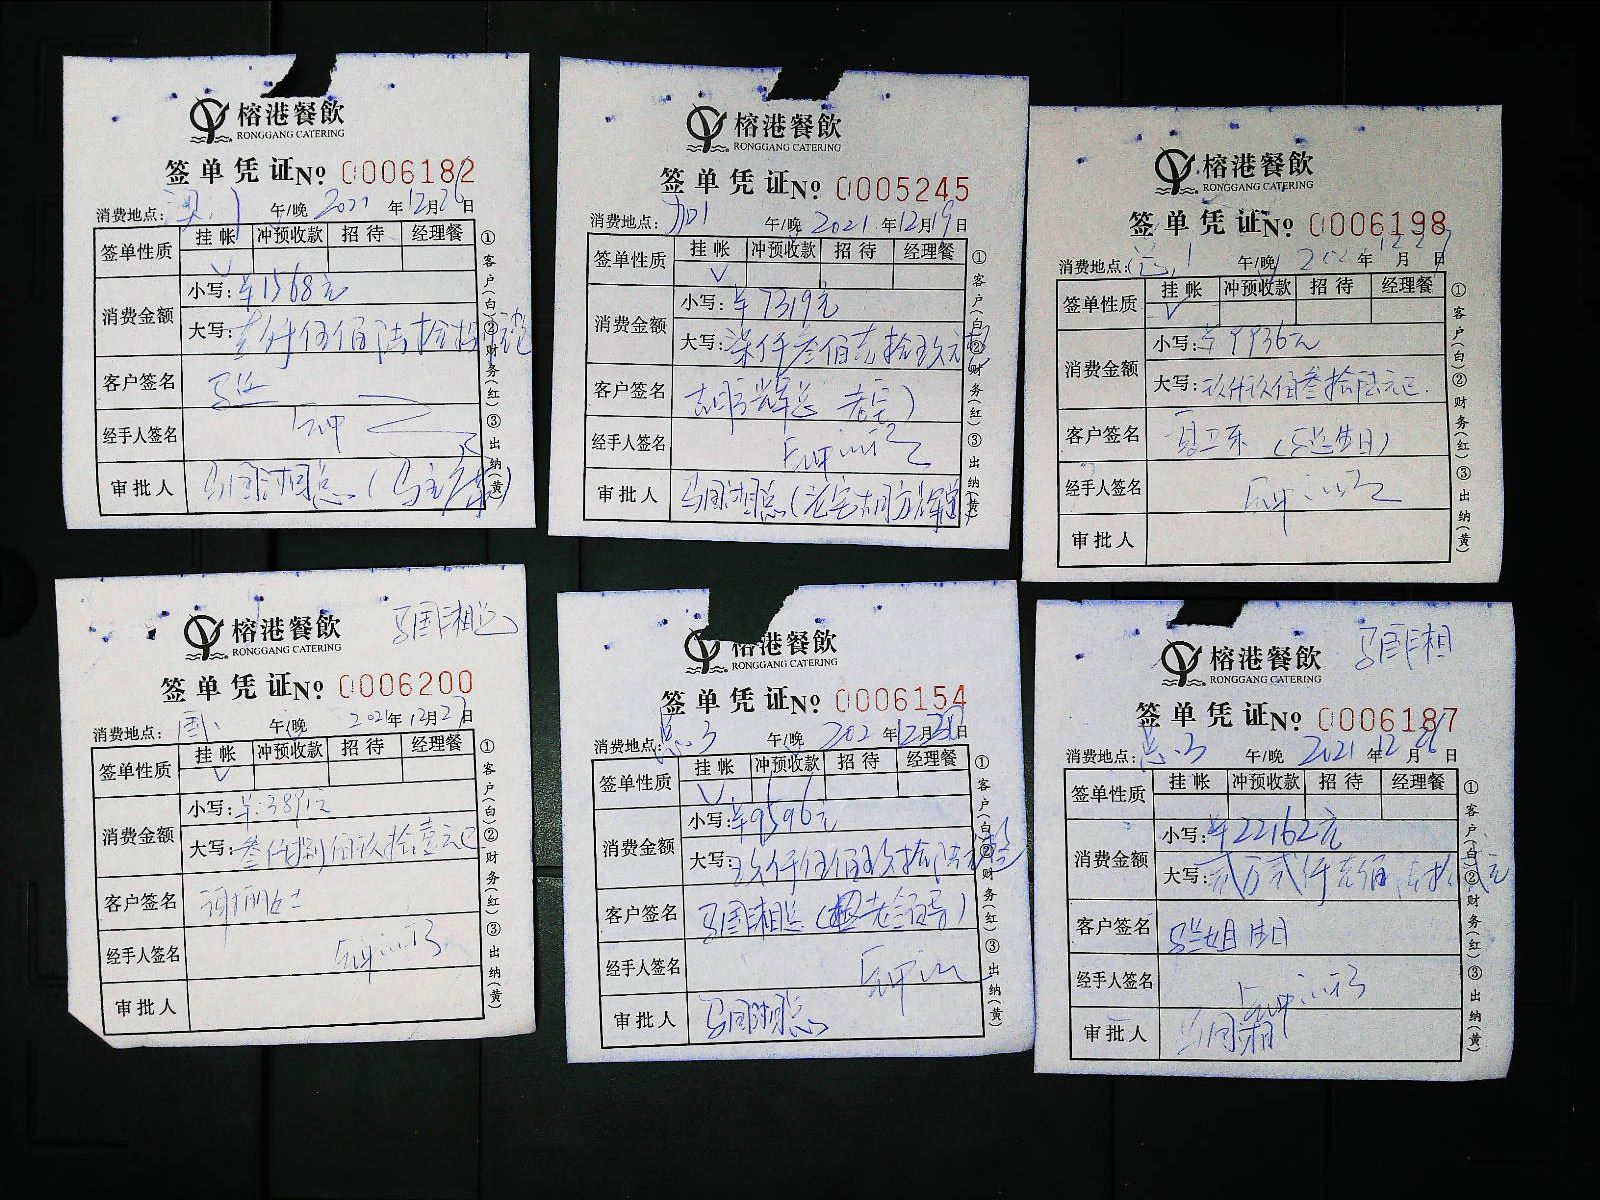 榕港餐飲
RONGGANG CATERING
签单凭证 No 0006182
消费地点: 澳门 午/晚 2021年12月26日
签单性质 挂帐 冲预收款 招待 经理餐
✓
消费金额
小写: ¥1568元
大写: 壹仟伍佰陆拾捌元
客户签名 马总
经手人签名
审批人 马国湘总
①客户(白)②财务(红)③出纳(黄)
榕港餐飲
RONGGANG CATERING
签单凭证 No 0005245
消费地点: 午/晚 2021年12月19日
签单性质 挂帐 冲预收款 招待 经理餐
✓
消费金额
小写: ¥7319元
大写: 柒仟叁佰壹拾玖元整
客户签名 胡方辉总(老宅)
经手人签名
审批人 马国湘总(老宅胡方辉总)
①客户(白)②财务(红)③出纳(黄)
榕港餐飲
RONGGANG CATERING
签单凭证 No 0006198
消费地点: 午/晚 年12月27日
签单性质 挂帐 冲预收款 招待 经理餐
✓
消费金额
小写: ¥9936元
大写: 玖仟玖佰叁拾陆元正
客户签名 (马总生日)
经手人签名
审批人
①客户(白)②财务(红)③出纳(黄)
马国湘总
榕港餐飲
RONGGANG CATERING
签单凭证 No 0006200
消费地点: 午/晚 2021年12月27日
签单性质 挂帐 冲预收款 招待 经理餐
✓
消费金额
小写: ¥:3891元
大写: 叁仟捌佰玖拾壹元正
客户签名
经手人签名
审批人
①客户(白)②财务(红)③出纳(黄)
榕港餐飲
RONGGANG CATERING
签单凭证 No 0006154
消费地点: 总.3 午/晚 202 年12月 日
签单性质 挂帐 冲预收款 招待 经理餐
✓
消费金额
小写: ¥9596元
大写: 玖仟伍佰玖拾陆元整
客户签名 马国湘总(老领导)
经手人签名
审批人 马国湘总
①客户(白)②财务(红)③出纳(黄)
马国湘
榕港餐飲
RONGGANG CATERING
签单凭证 No 0006187
消费地点: 总.3 午/晚 2021年12月26日
签单性质 挂帐 冲预收款 招待 经理餐
消费金额
小写: ¥22162元
大写: 贰万贰仟壹佰陆拾贰元
客户签名 马总姐生日
经手人签名
审批人
①客户(白)②财务(红)③出纳(黄)